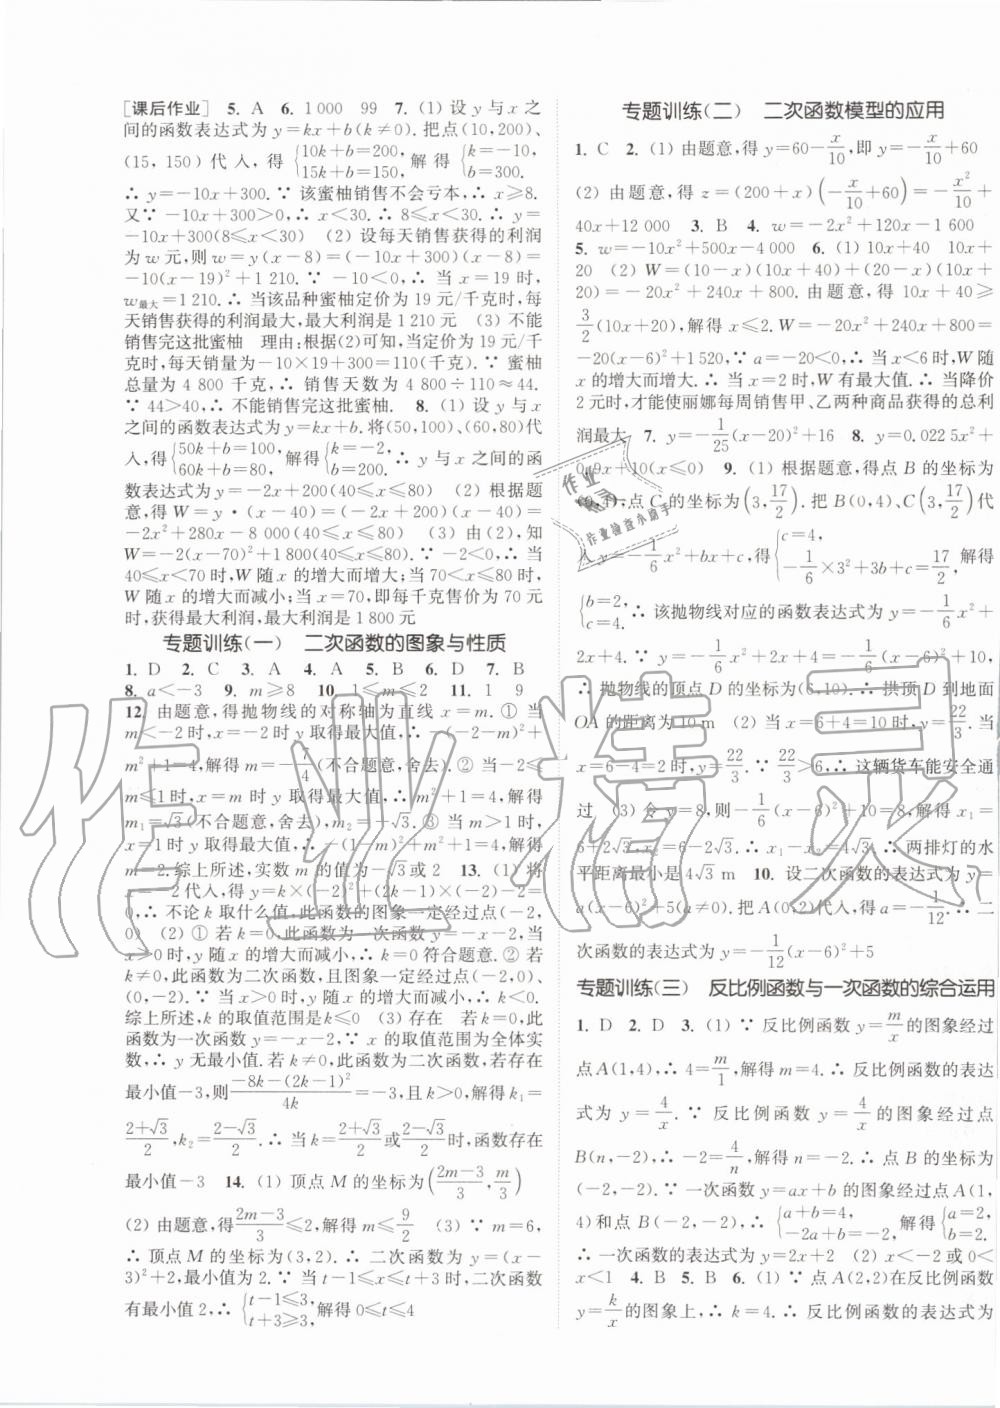 [课后作业]　5. A　6. 1 000　99　7. (1) 设 y 与 x 之
间的函数表达式为 y＝kx＋b(k≠0). 把点(10，200)、
(15，150) 代入，得 {10k＋b＝200, 15k＋b＝150, 解得 {k＝－10, b＝300.
∴ y＝－10x＋300. ∵ 该蜜柚销售不会亏本，∴ x≥8.
又∵ －10x＋300＞0，∴ x＜30. ∴ 8≤x＜30. ∴ y＝
－10x＋300(8≤x＜30)　(2) 设每天销售获得的利润
为 w 元，则 w＝y(x－8)＝(－10x＋300)(x－8)＝
－10(x－19)²＋1 210. ∵ －10＜0，∴ 当 x＝19 时，
w最大＝1 210. ∴ 当该品种蜜柚定价为 19 元/千克时，每
天销售获得的利润最大，最大利润是 1 210 元　(3) 不能
销售完这批蜜柚　理由：根据(2)可知，当定价为 19 元/千
克时，每天销量为－10×19＋300＝110(千克). ∵ 蜜柚
总量为 4 800 千克，∴ 销售天数为 4 800÷110≈44.
∵ 44＞40，∴ 不能销售完这批蜜柚.　8. (1) 设 y 与 x
之间的函数表达式为 y＝kx＋b. 将(50，100)、(60，80)代
入，得{50k＋b＝100, 60k＋b＝80, 解得{k＝－2, b＝200. ∴ y 与 x 之间的函
数表达式为 y＝－2x＋200(40≤x≤80)　(2) 根据题
意，得 W＝y·(x－40)＝(－2x＋200)(x－40)＝
－2x²＋280x－8 000(40≤x≤80)　(3) 由(2)，知
W＝－2(x－70)²＋1 800(40≤x≤80). ∵ －2＜0，∴ 当
40≤x≤70 时，W 随 x 的增大而增大；当 70≤x≤80 时，
W 随 x 的增大而减小；当 x＝70，即每千克售价为 70 元
时，获得最大利润，最大利润是 1 800 元
专题训练(一)　二次函数的图象与性质
1. D　2. C　3. A　4. A　5. B　6. D　7. B
8. a＜－3　9. m≥8　10. 1≤m≤2　11. 1　9
12. 由题意，得抛物线的对称轴为直线 x＝m. ① 当
m＜－2 时，x＝－2 时 y 取得最大值，∴ －(－2－m)²＋
m²＋1＝4，解得 m＝－7/4(不合题意，舍去). ② 当－2≤
m≤1 时，x＝m 时 y 取得最大值，∴ m²＋1＝4，解得
m₁＝√3(不合题意，舍去)，m₂＝－√3. ③ 当 m＞1 时，
x＝1 时 y 取得最大值，∴ －(1－m)²＋m²＋1＝4，解得
m＝2. 综上所述，实数 m 的值为－√3或 2　13. (1) 将
x＝－2 代入，得 y＝k×(－2)²＋(2k－1)×(－2)－2＝
0，∴ 不论 k 取什么值，此函数的图象一定经过点(－2，
0)　(2) ① 若 k＝0，此函数为一次函数 y＝－x－2，当
x＞0 时，y 随 x 的增大而减小，∴ k＝0 符合题意. ② 若
k≠0，此函数为二次函数，且图象一定经过点(－2，0)、
(0，－2). ∵ 当 x＞0 时，y 随 x 的增大而减小，∴ k＜0.
综上所述，k 的取值范围是k≤0　(3) 存在　若 k＝0，此
函数为一次函数 y＝－x－2，∵ x 的取值范围为全体实
数，∴ y 无最小值. 若 k≠0，此函数为二次函数，若存在
最小值－3，则(－8k－(2k－1)²)/4k＝－3，且 k＞0，解得 k₁＝
(2＋√3)/2，k₂＝(2－√3)/2. ∴ 当 k＝(2＋√3)/2或(2－√3)/2时，函数存在
最小值－3　14. (1) 顶点 M 的坐标为((2m－3)/3，m/3)
(2) 由题意，得(2m－3)/3≤2，解得 m≤9/2　(3) ∵ m＝6，
∴ 顶点 M 的坐标为(3，2). ∴ 二次函数为 y＝(x－
3)²＋2，最小值为 2. ∵ 当 t－1≤x≤t＋3 时，二次函数
有最小值 2，∴ {t－1≤3, t＋3≥3, 解得 0≤t≤4
专题训练(二)　二次函数模型的应用
1. C　2. (1) 由题意，得 y＝60－x/10，即 y＝－x/10＋60
(2) 由题意，得 z＝(200＋x)(－x/10＋60)＝－x²/10＋
40x＋12 000　3. B　4. w＝－2x²＋120x－1 600
5. w＝－10x²＋500x－4 000　6. (1) 10x＋40　10x＋
20　(2) W＝(10－x)(10x＋40)＋(20－x)(10x＋
20)＝－20x²＋240x＋800，由题意，得 10x＋40≥
3/2(10x＋20)，解得 x≤2. W＝－20x²＋240x＋800＝
－20(x－6)²＋1 520，∵ a＝－20＜0，∴ 当 x＜6 时，W随
x 的增大而增大. ∴ 当 x＝2 时，W 有最大值. ∴ 当降价
2 元时，才能使丽娜每周销售甲、乙两种商品获得的总利
润最大　7. y＝－1/25(x－20)²＋16　8. y＝0.022 5x²＋
0.9x＋10(x≤0)　9. (1) 根据题意，得点 B 的坐标为
(0，4)，点 C 的坐标为(3，17/2). 把 B(0，4)、C(3，17/2)代
入 y＝－1/6x²＋bx＋c，得{c＝4, －1/6×3²＋3b＋c＝17/2, 解得
{b＝2, c＝4. ∴ 该抛物线对应的函数表达式为 y＝－1/6x²＋
2x＋4. ∵ y＝－1/6x²＋2x＋4＝－1/6(x－6)²＋10，
∴ 抛物线的顶点 D 的坐标为(6，10). ∴ 拱顶 D 到地面
OA 的距离为 10 m　(2) 当 x＝6＋4＝10 时，y＝22/3. 当
x＝6－4＝2 时，y＝22/3. ∵ 22/3＞6，∴ 这辆货车能安全通
过　(3) 令 y＝8，则－1/6(x－6)²＋10＝8，解得 x₁＝
6＋2√3，x₂＝6－2√3，∴ x₁－x₂＝4√3. ∴ 两排灯的水
平距离最小是4√3 m　10. 设二次函数的表达式为 y＝
a(x－6)²＋5(a≠0). 把 A(0，2)代入，得 a＝－1/12. ∴ 二
次函数的表达式为 y＝－1/12(x－6)²＋5
专题训练(三)　反比例函数与一次函数的综合运用
1. D　2. D　3. (1) ∵ 反比例函数 y＝m/x的图象经过
点 A(1，4)，∴ 4＝m/1，解得 m＝4. ∴ 反比例函数的表达
式为 y＝4/x. ∵ 反比例函数 y＝4/x的图象经过点
B(n，－2)，∴ －2＝4/n，解得 n＝－2. ∴ 点 B 的坐标为
(－2，－2). ∵ 一次函数 y＝ax＋b 的图象经过点 A(1，
4)和点 B(－2，－2)，∴ {a＋b＝4, －2a＋b＝－2, 解得{a＝2, b＝2.
∴ 一次函数的表达式为 y＝2x＋2　(2) x＜－2 或0＜
x＜1　4. B　5. B　6. (1) ∵ 点 A(2，2)在反比例函数
y＝k/x的图象上，∴ k＝4. ∴ 反比例函数的表达式为
作业精灵
作业
作业检查小助手